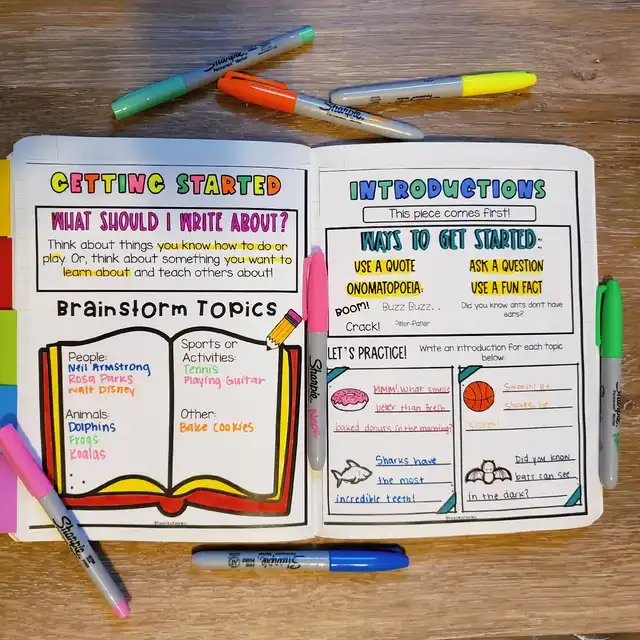 GETTING STARTED
WHAT SHOULD I WRITE ABOUT?
Think about things you know how to do or
play. Or, think about something you want to
learn about and teach others about!
Brainstorm Topics
People:
Neil Armstrong
Rosa Parks
Walt Disney
Animals:
Dolphins
Frogs
Koalas
Sports or
Activities:
Tennis
Playing Guitar
Other:
Bake Cookies
INTRODUCTIONS
This piece comes first!
WAYS TO GET STARTED:
USE A QUOTE
ONOMATOPOEIA:
BOOM! Buzz Buzz. .
Crack! Pitter-Patter
ASK A QUESTION
USE A FUN FACT
Did you know ants don't have
ears?
LET'S PRACTICE! Write an introduction for each topic
below:
MMM! What smells
better than fresh
baked donuts in the morning?
Swoosh! He
shoots, he
scores!
Sharks have
the most
incredible teeth!
Did you know
bats can see
in the dark?
Sharpie
Sharpie
Sharpie
Sharpie
Sharpie